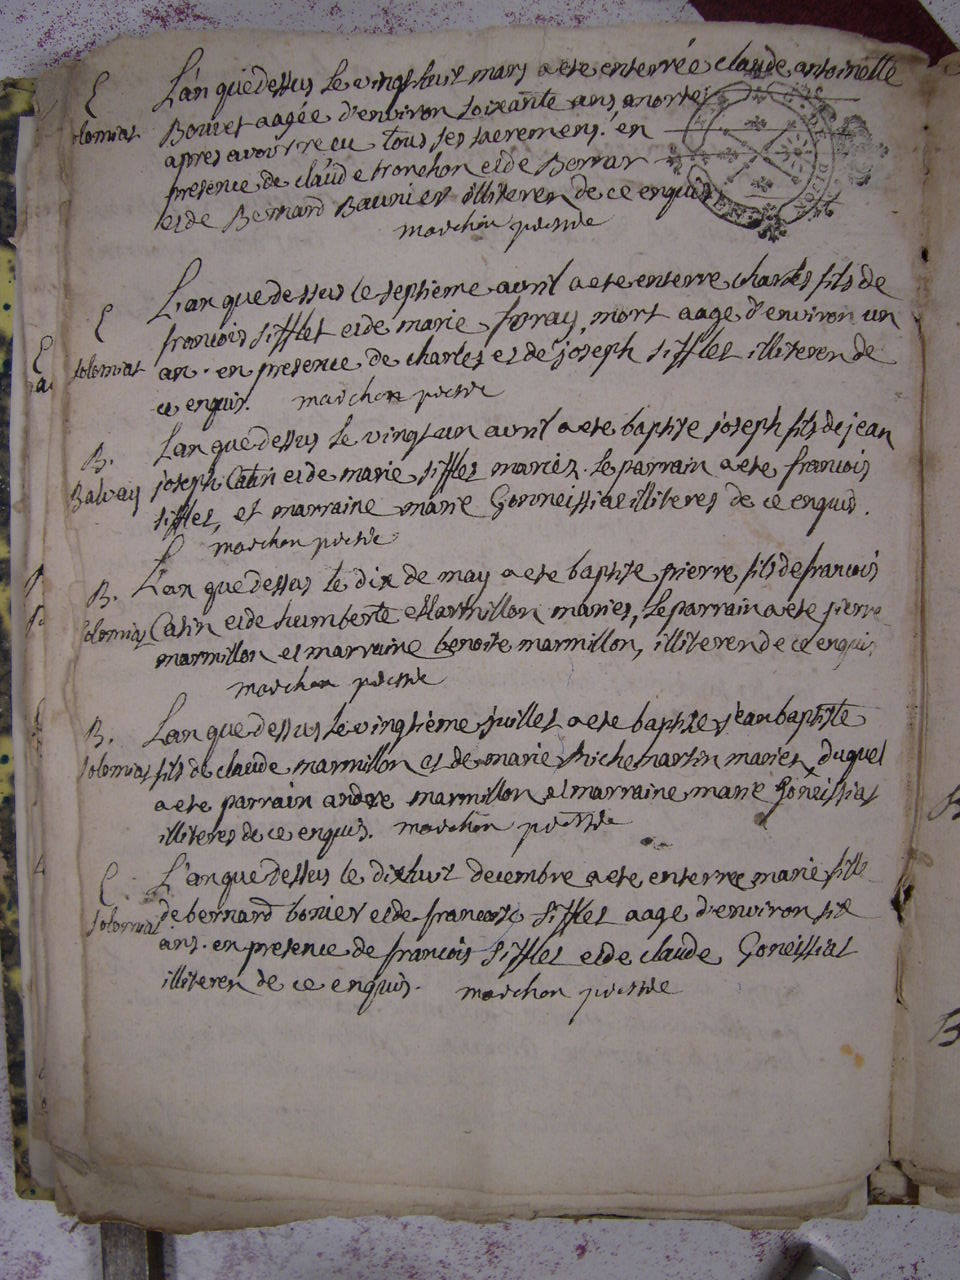 E
Solomiat
L'an que dessus le vingt huit mars a ete enterrée claude antoinette
Bouvet aagée d'environ soixante ans morte
apres avoir receu tous ses sacremens. en
presence de claude tronchon et de Berrar
et de Bernard Baunier illiteren de ce enquis
marchon prestre
E
Solomiat
L'an que dessus le septieme avril a ete enterre charles fils de
francois sifflet et de marie foray, mort aage d'environ un
an. en presence de charles et de joseph sifflet illiteren de
ce enquis. marchon prestre
B.
Balvay
L'an que dessus le vingt un avril a ete baptise joseph fils de jean
joseph Catin et de marie sifflet mariez. le parrain a ete francois
sifflet, et marraine marie Gonneissiat illiteres de ce enquis.
marchon prestre
B.
Solomiat
L'an que dessus le dix de may a ete baptise pierre fils de francois
Catin et de humberte marmillon maries, le parrain a ete pierre
marmillon et marraine benoite marmillon, illiteren de ce enquis
marchon prestre
B.
Solomiat
L'an que dessus le vingtième juillet a ete baptise jean baptiste
fils de claude marmillon et de marie michemartin maries, duquel
a ete parrain andre marmillon et marraine marie Goneissiat
illiteres de ce enquis. marchon prestre
E
Solomiat
L'an que dessus le dix huit decembre a ete enterree marie fille
de bernard bonier et de francoise sifflet aage d'environ six
ans. en presence de francois sifflet et de claude Goneissiat
illiteren de ce enquis. marchon prestre